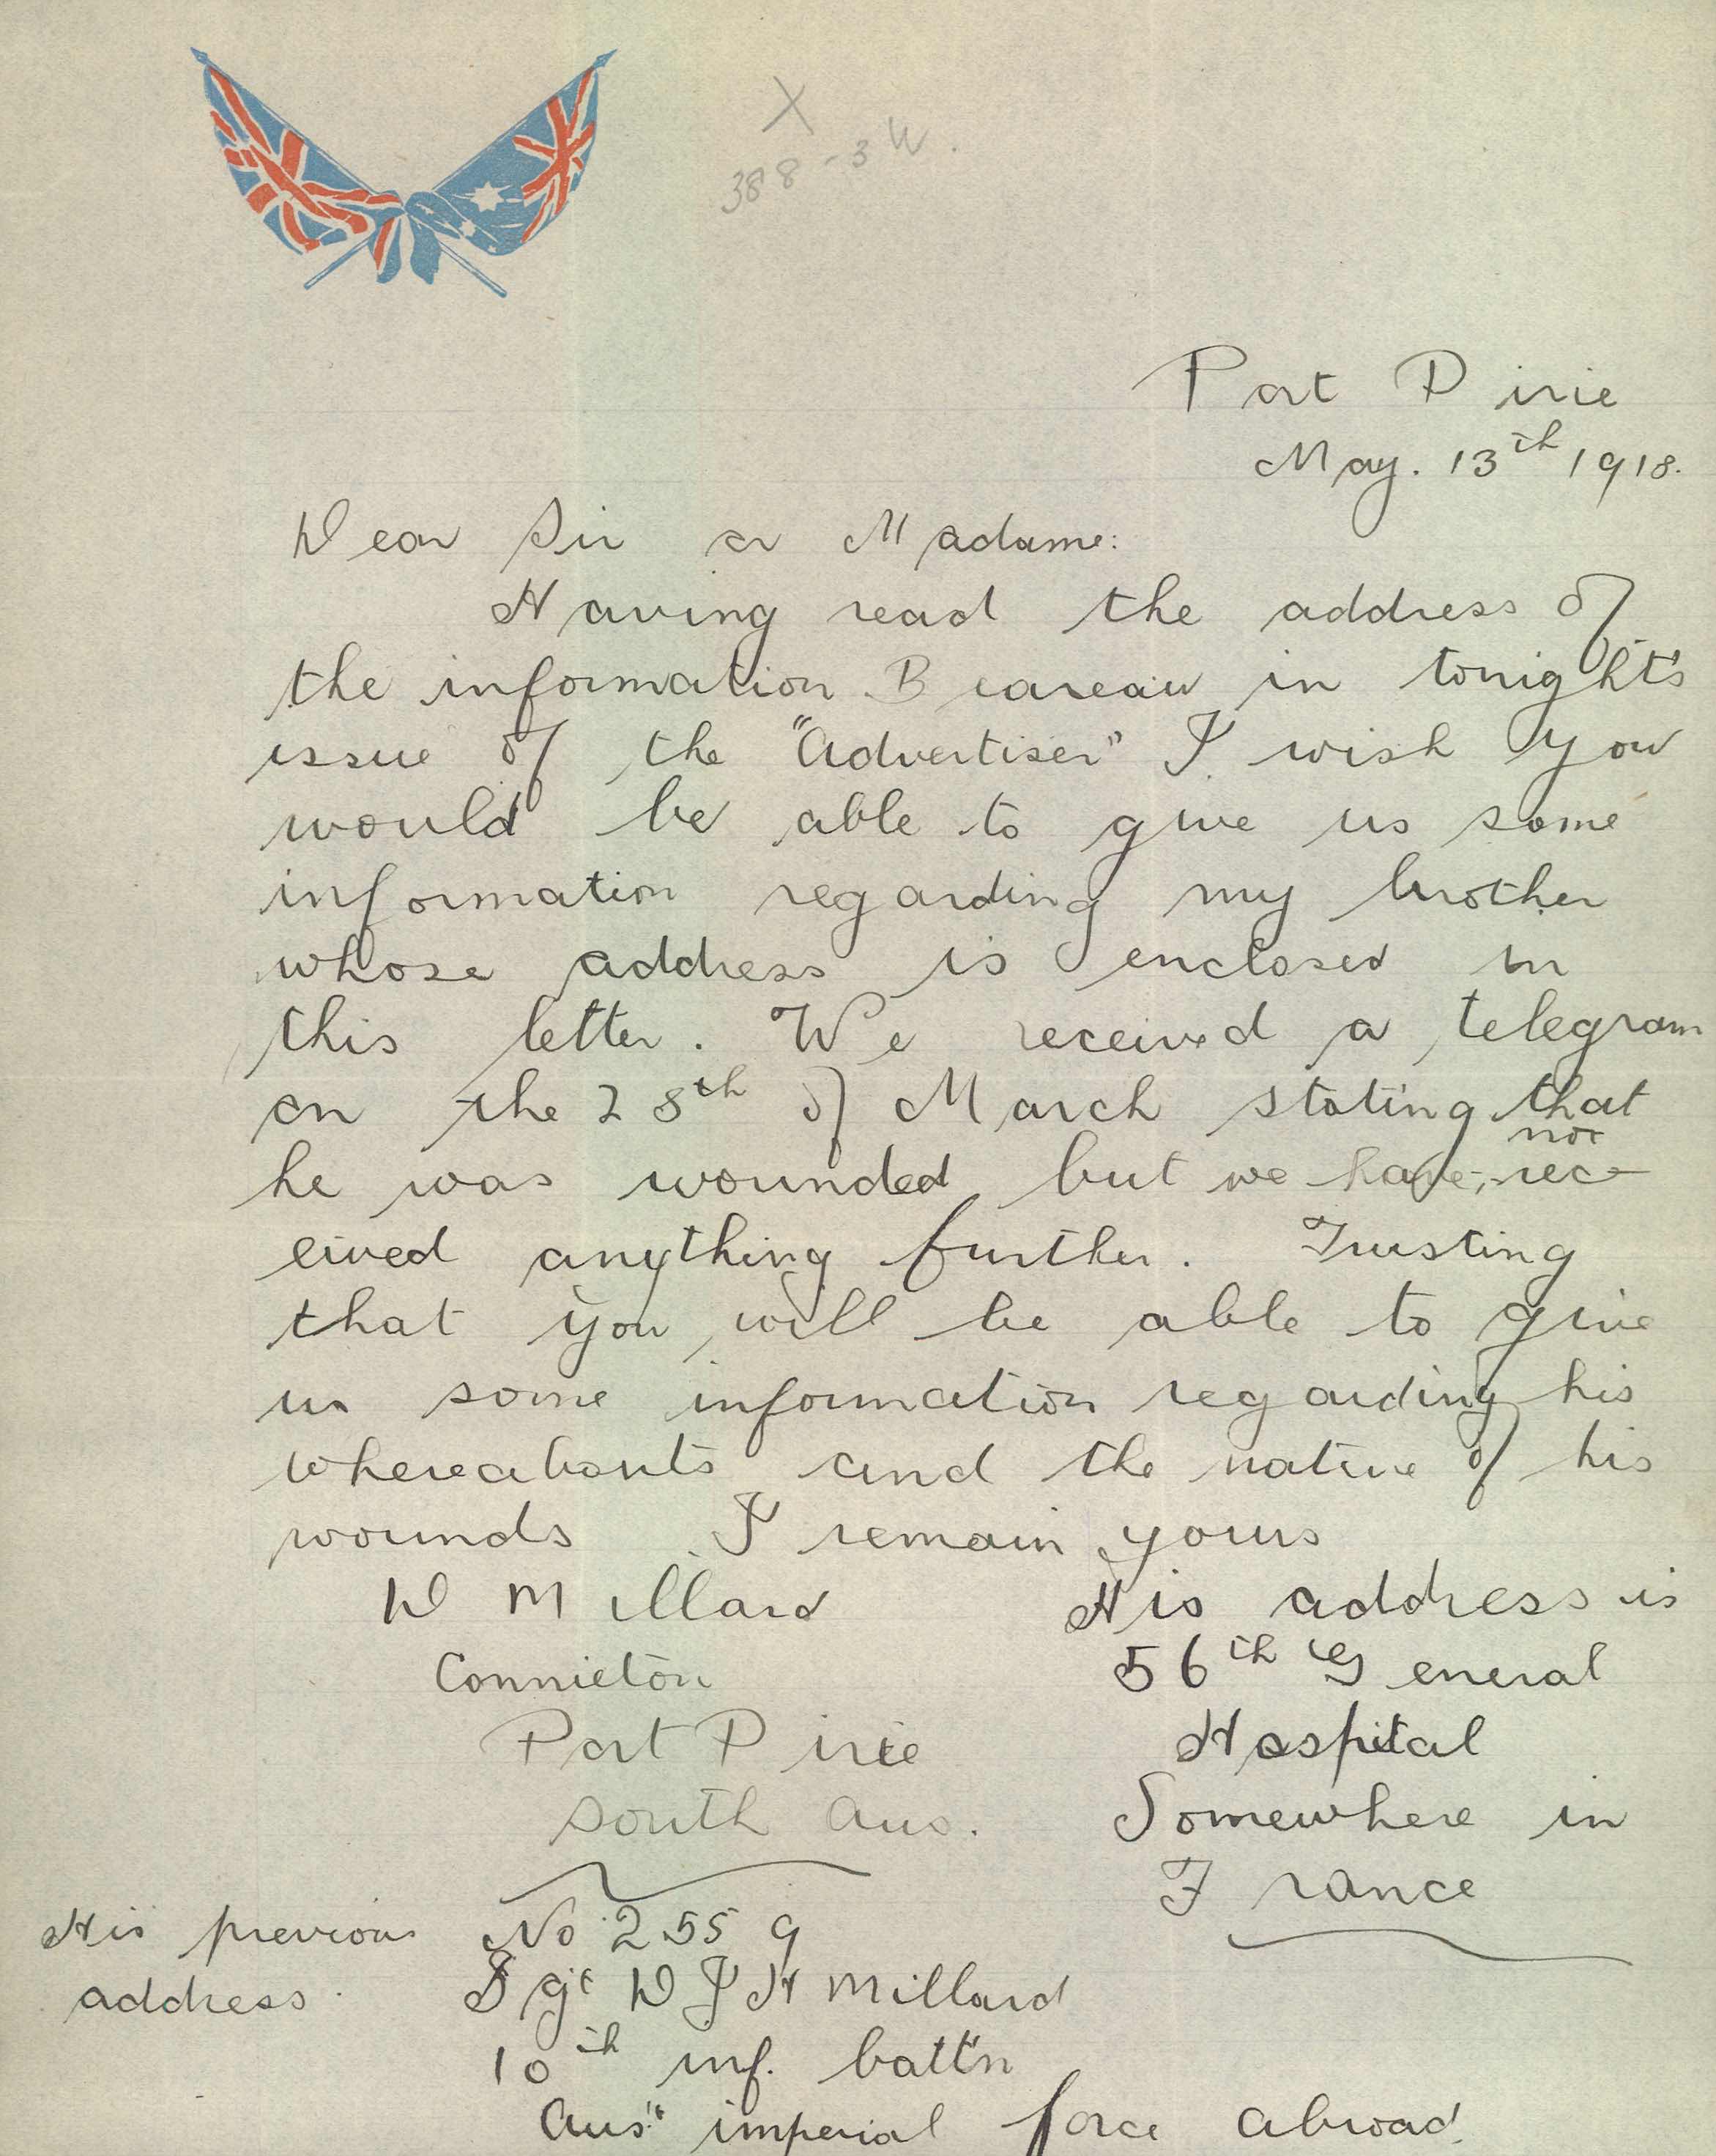 X
388-3W.
Port Pirie
May. 13th 1918.
Dear Sir or Madame:
Having read the address of
the information Beareau in tonight's
issue of the "Advertiser" I wish you
would be able to give us some
information regarding my brother
whose address is enclosed in
this letter. We received a telegram
on the 28th of March stating that
not
he was wounded but we have rec-
eived anything further. Trusting
that you will be able to give
us some information regarding his
whereabouts and the nature of his
wounds I remain yours
D Millard
Connieton
Port Pirie
South Aus.
His address is
56th General
Hospital
Somewhere in
France
His previous
address
No 2559
Sgt D J H Millard
10th inf. batt'n
Aus" imperial force abroad.